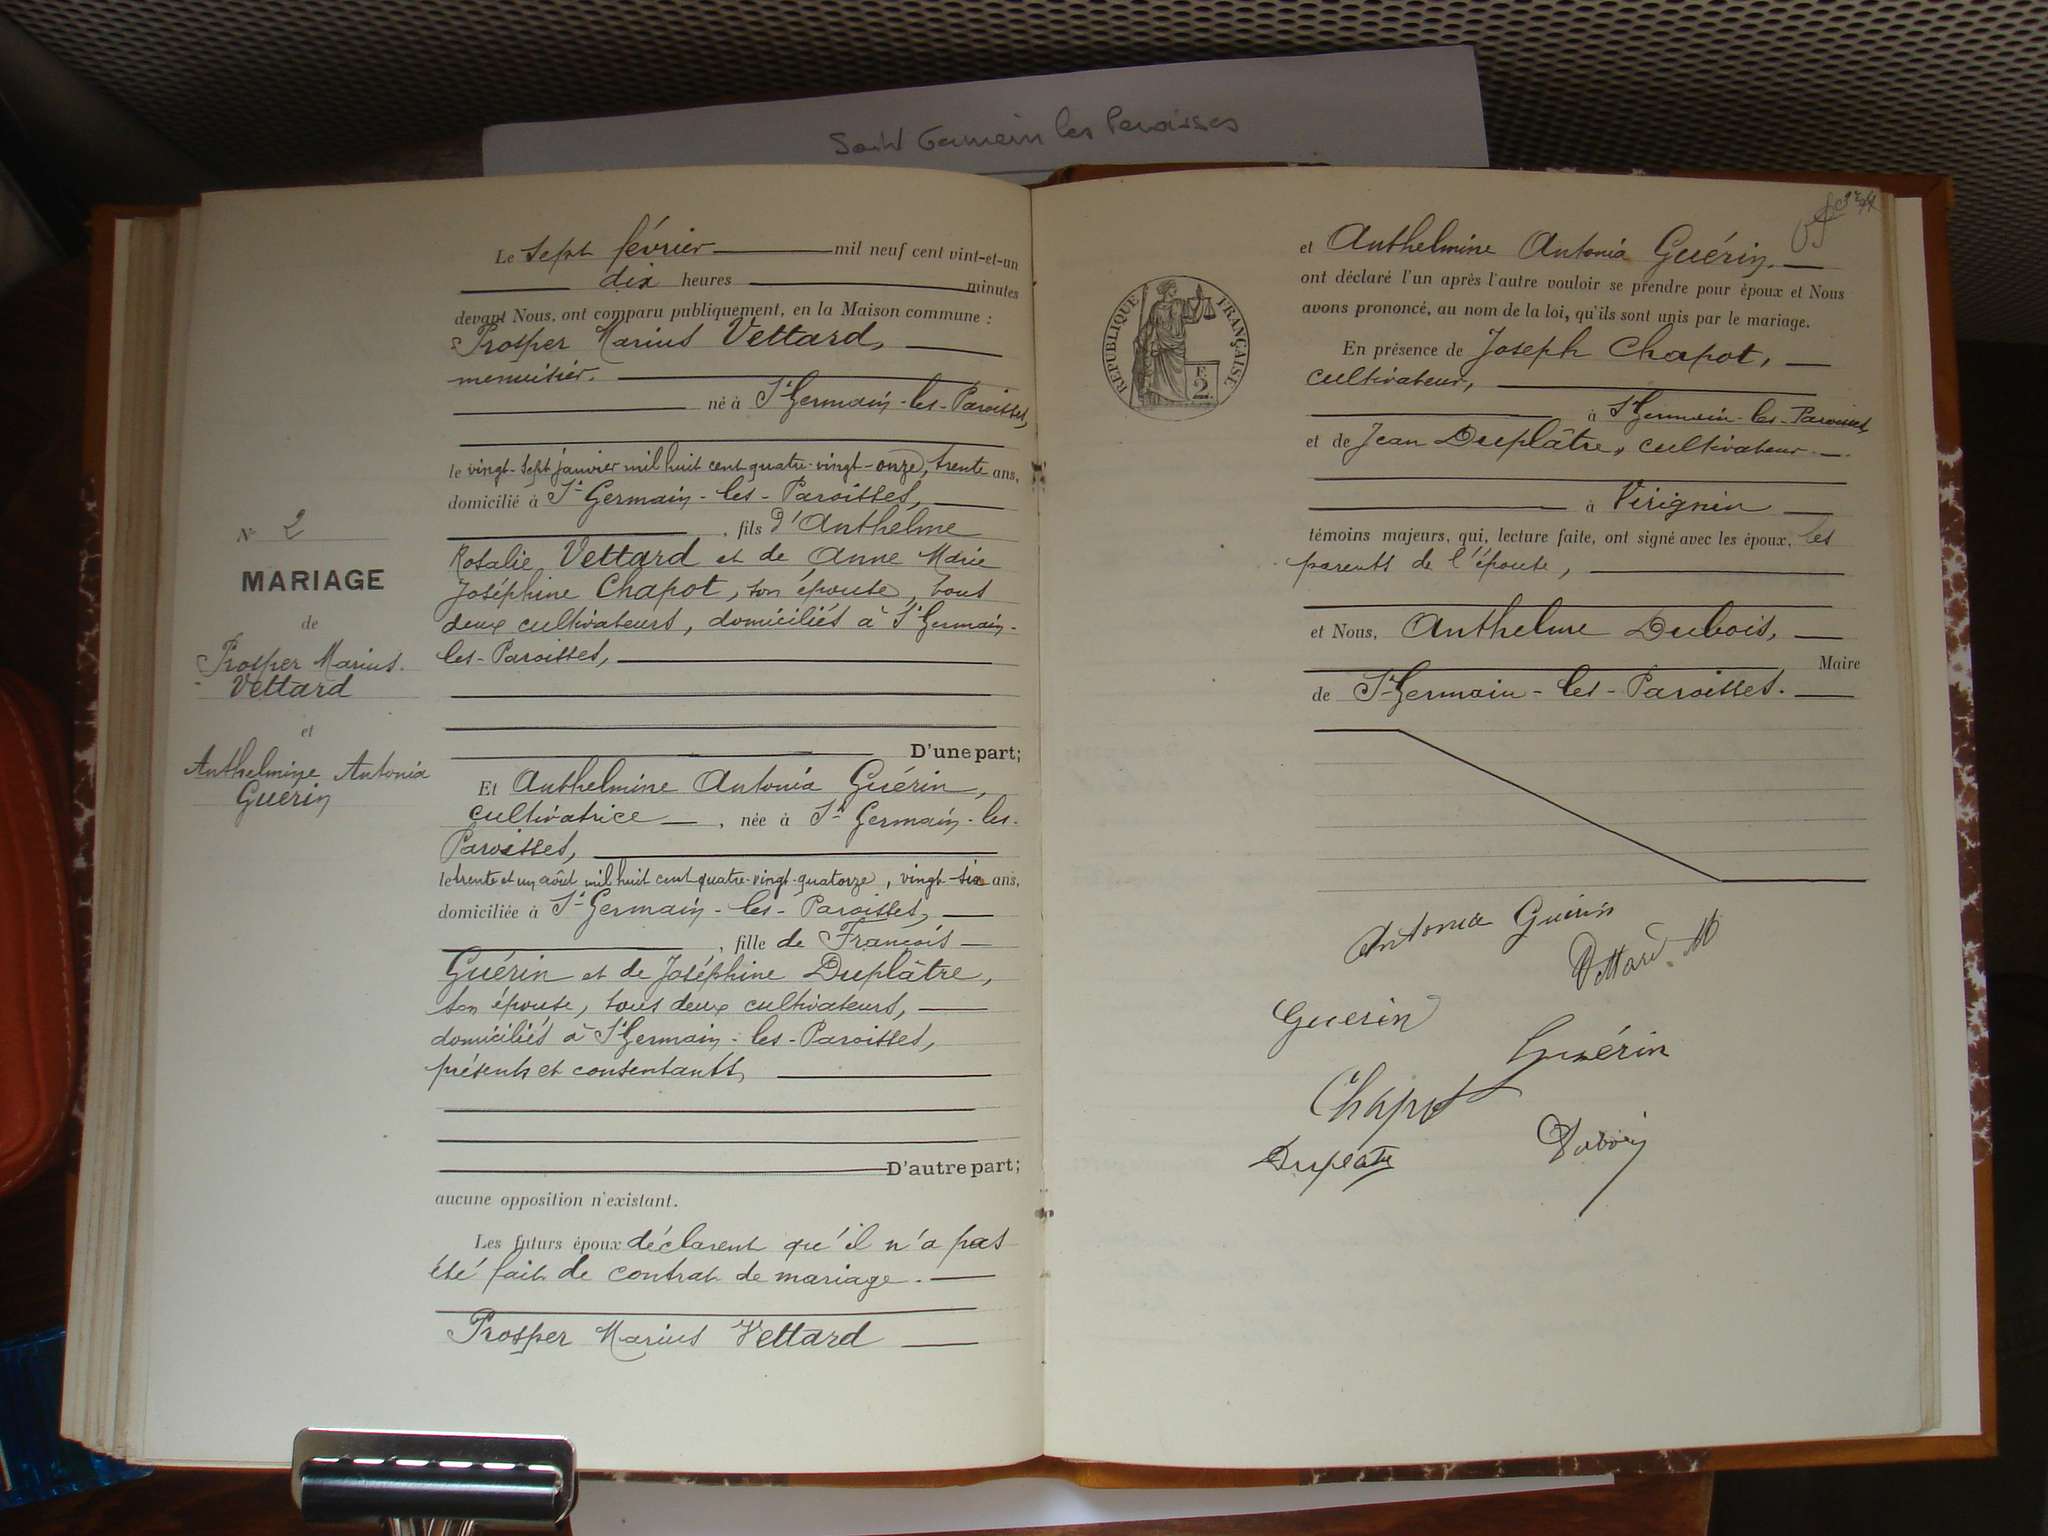 Saint Germain les Paroisses
Le sept février mil neuf cent vint-et-un
dix heures minutes
devant Nous, ont comparu publiquement, en la Maison commune :
Prosper Marius Vettard,
menuisier.
né à St Germain-les-Paroisses,
le vingt-sept janvier mil huit cent quatre-vingt-onze, trente ans,
domicilié à St Germain-les-Paroisses,
, fils d'Anthelme
Rosalie Vettard et de Anne Marie
Joséphine Chapot, son épouse, tous
deux cultivateurs, domiciliés à St Germain-
les-Paroisses,
D'une part;
Nº 2
MARIAGE
de
Prosper Marius
Vettard
et
Anthelmine Antonia
Guérin
Et Anthelmine Antonia Guérin,
cultivatrice , née à St Germain-les-
Paroisses,
le trente et un août mil huit cent quatre-vingt-quatorze, vingt-six ans,
domiciliée à St Germain-les-Paroisses,
, fille de François
Guérin et de Joséphine Duplâtre,
son épouse, tous deux cultivateurs,
domiciliés à St Germain-les-Paroisses,
présents et consentants,
D'autre part;
aucune opposition n'existant.
Les futurs époux déclarent qu'il n'a pas
été fait de contrat de mariage.
Prosper Marius Vettard
RÉPUBLIQUE FRANÇAISE
F.
2.
et Anthelmine Antonia Guérin.
ont déclaré l'un après l'autre vouloir se prendre pour époux et Nous
avons prononcé, au nom de la loi, qu'ils sont unis par le mariage.
En présence de Joseph Chapot,
cultivateur,
à St Germain-les-Paroisses
et de Jean Duplâtre, cultivateur
à Virignin
témoins majeurs, qui, lecture faite, ont signé avec les époux, les
parents de l'épouse,
et Nous, Anthelme Dubois,
Maire
de St Germain-les-Paroisses.
Antonia Guérin
Vettard M
Guerin
Guérin
Chapot
Duplatre
Dubois